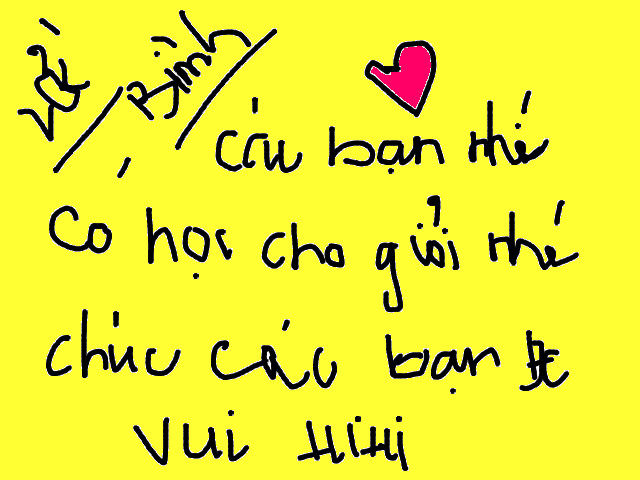 Bình
các bạn nhé
Có học cho giỏi nhé
chúc các bạn
vui HiHi